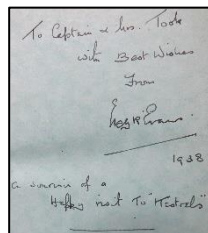 To Captain & Mrs. Tooke
with Best Wishes
From
Evans
1938
a souvenir of a
Happy visit to "Kestrels"